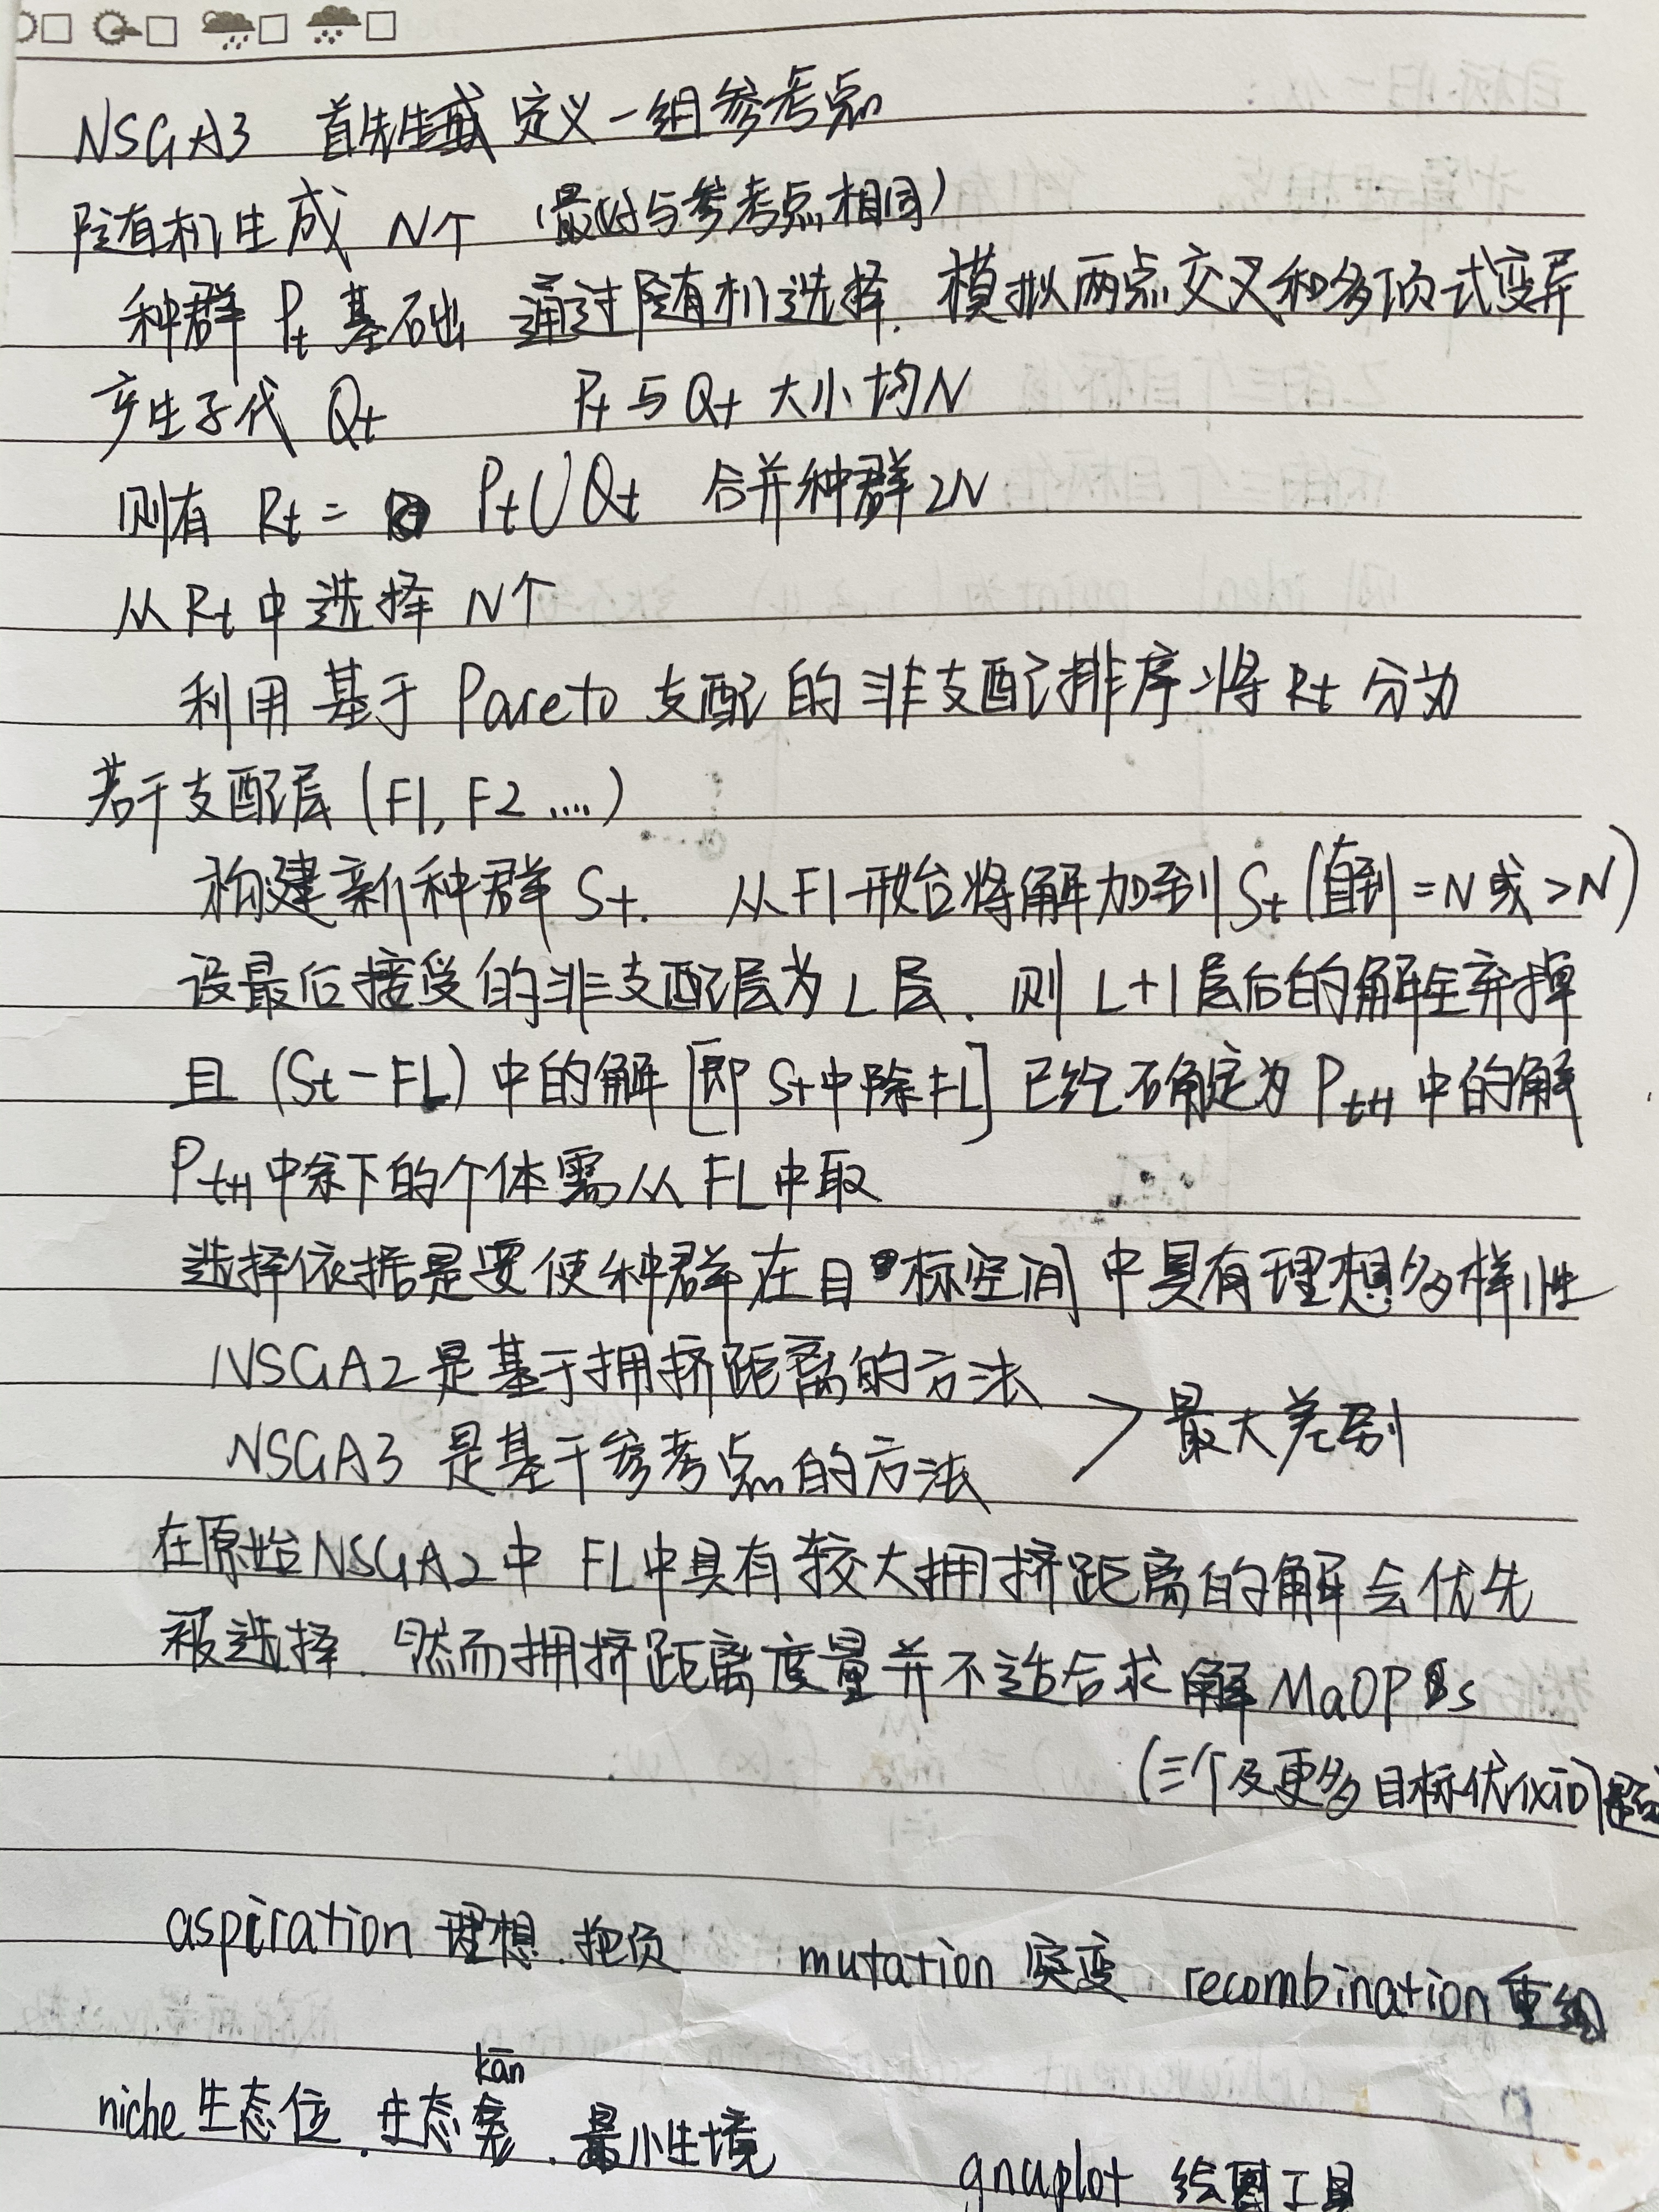 NSGA3 首先生成 定义一组参考点
随机生成 N个 (最好与参考点相同)
种群 Pt 基础 通过随机选择、模拟两点交叉和多项式变异
产生子代 Qt Pt 与 Qt 大小均N
则有 Rt = Pt∪Qt 合并种群2N
从 Rt 中选择 N个
利用基于 Pareto 支配的非支配排序将 Rt 分为
若干支配层 (F1, F2 ....)
构建新种群 St. 从F1开始将解加到 St (直到 =N 或 >N)
设最后接受的非支配层为 L 层. 则 L+1 层后的解全弃掉
且 (St-FL) 中的解 [即 St中除FL] 已经确定为 Pt+1 中的解
Pt+1 中余下的个体需从 FL 中取
选择依据是要使种群在目标空间中具有理想多样性
NSGA2 是基于拥挤距离的方法
> 最大差别
NSGA3 是基于参考点的方法
在原始NSGA2中 FL中具有较大拥挤距离的解会优先
被选择. 然而拥挤距离度量并不适合求解 MaOPs
(三个及更多目标优化)
aspiration 理想.抱负 mutation 突变 recombination 重组
kān
niche 生态位.生态龛.最小生境
gnuplot 绘图工具